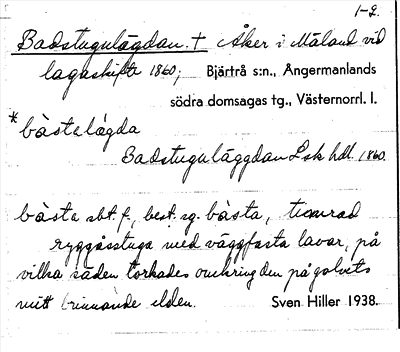 1-2.
Badstugulägdan. † Åker i Måland vid
lagaskifte 1860; Bjärtrå s:n., Ångermanlands
södra domsagas tg., Västernorrl. l.
*bàstalägda
Badstuguläggdan Lsk hdl. 1860.
bàsta sbt. f., best. sg. bàsta, timrad
ryggåsstuga med väggfasta lavar, på
vilka säden torkades omkring den på golvets
mitt brinnande elden. Sven Hiller 1938.